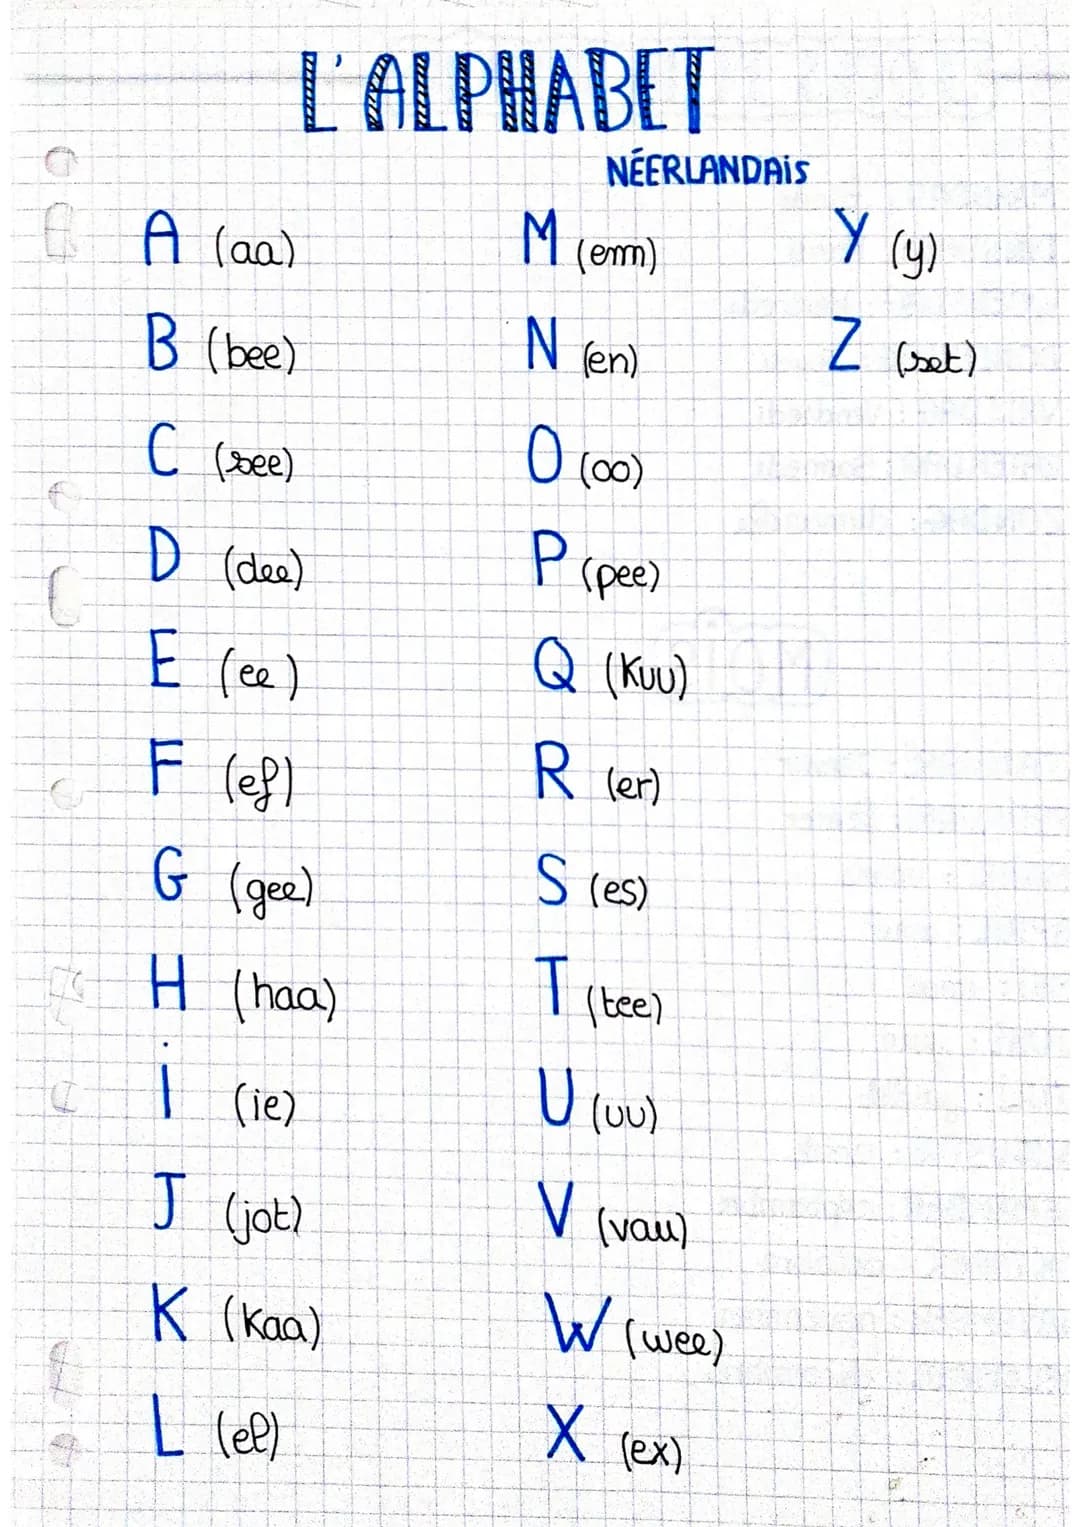 L'ALPHABET
NÉERLANDAiS
A (aa)
B (bee)
C (see)
D (dee)
E (ee)
F (ef)
G (gee)
H (haa)
i (ie)
J (jot)
K (Kaa)
L (el)
M (emm)
N (en)
O (oo)
P (pee)
Q (Kuu)
R (er)
S (es)
T (tee)
U (uu)
V (vau)
W (wee)
X (ex)
Y (y)
Z (set)